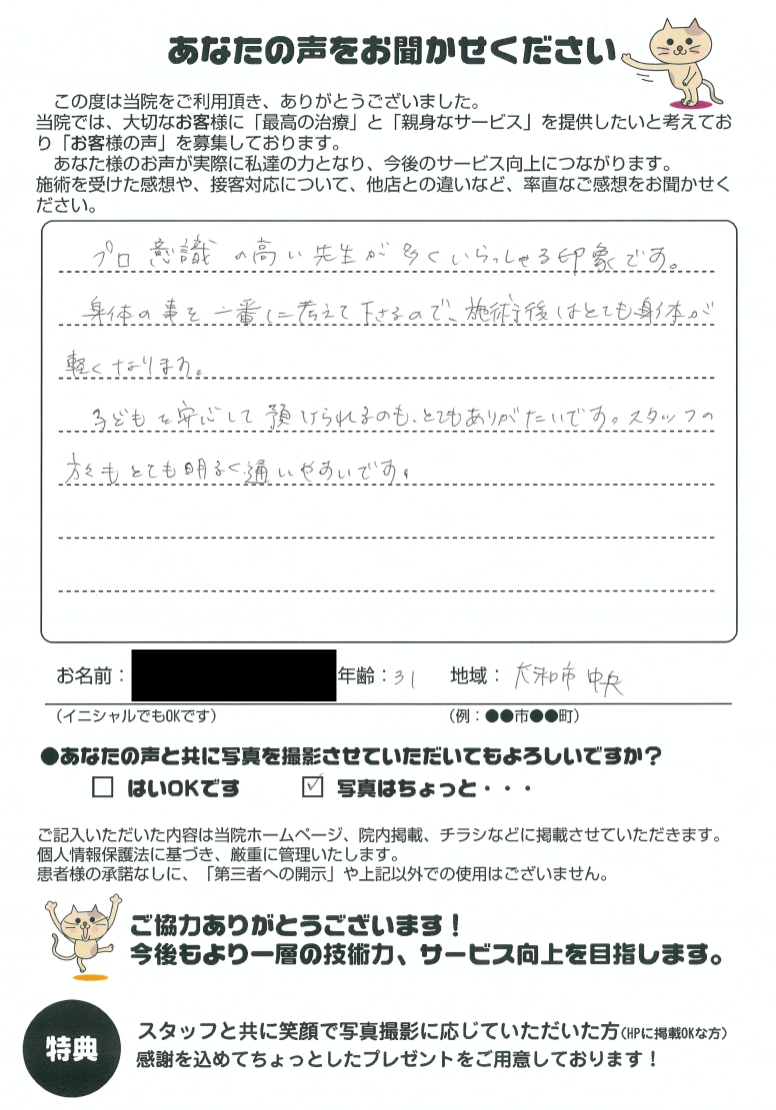 あなたの声をお聞かせください
この度は当院をご利用頂き、ありがとうございました。
当院では、大切なお客様に「最高の治療」と「親身なサービス」を提供したいと考えてお
り「お客様の声」を募集しております。
あなた様のお声が実際に私達の力となり、今後のサービス向上につながります。
施術を受けた感想や、接客対応について、他店との違いなど、率直なご感想をお聞かせく
ださい。
プロ意識の高い先生が多くいらっしゃる印象です。
身体の事を一番に考えて下さるので、施術後はとても身体が
軽くなります。
子どもを安心して預けられるのも、とてもありがたいです。スタッフの
方々もとても明るく通いやすいです。
お名前： 年齢：31 地域：大和市中央
（イニシャルでもOKです） （例：●●市●●町）
●あなたの声と共に写真を撮影させていただいてもよろしいですか？
□ はいOKです ☑ 写真はちょっと・・・
ご記入いただいた内容は当院ホームページ、院内掲載、チラシなどに掲載させていただきます。
個人情報保護法に基づき、厳重に管理いたします。
患者様の承諾なしに、「第三者への開示」や上記以外での使用はございません。
ご協力ありがとうございます！
今後もより一層の技術力、サービス向上を目指します。
特典
スタッフと共に笑顔で写真撮影に応じていただいた方（HPに掲載OKな方）
感謝を込めてちょっとしたプレゼントをご用意しております！